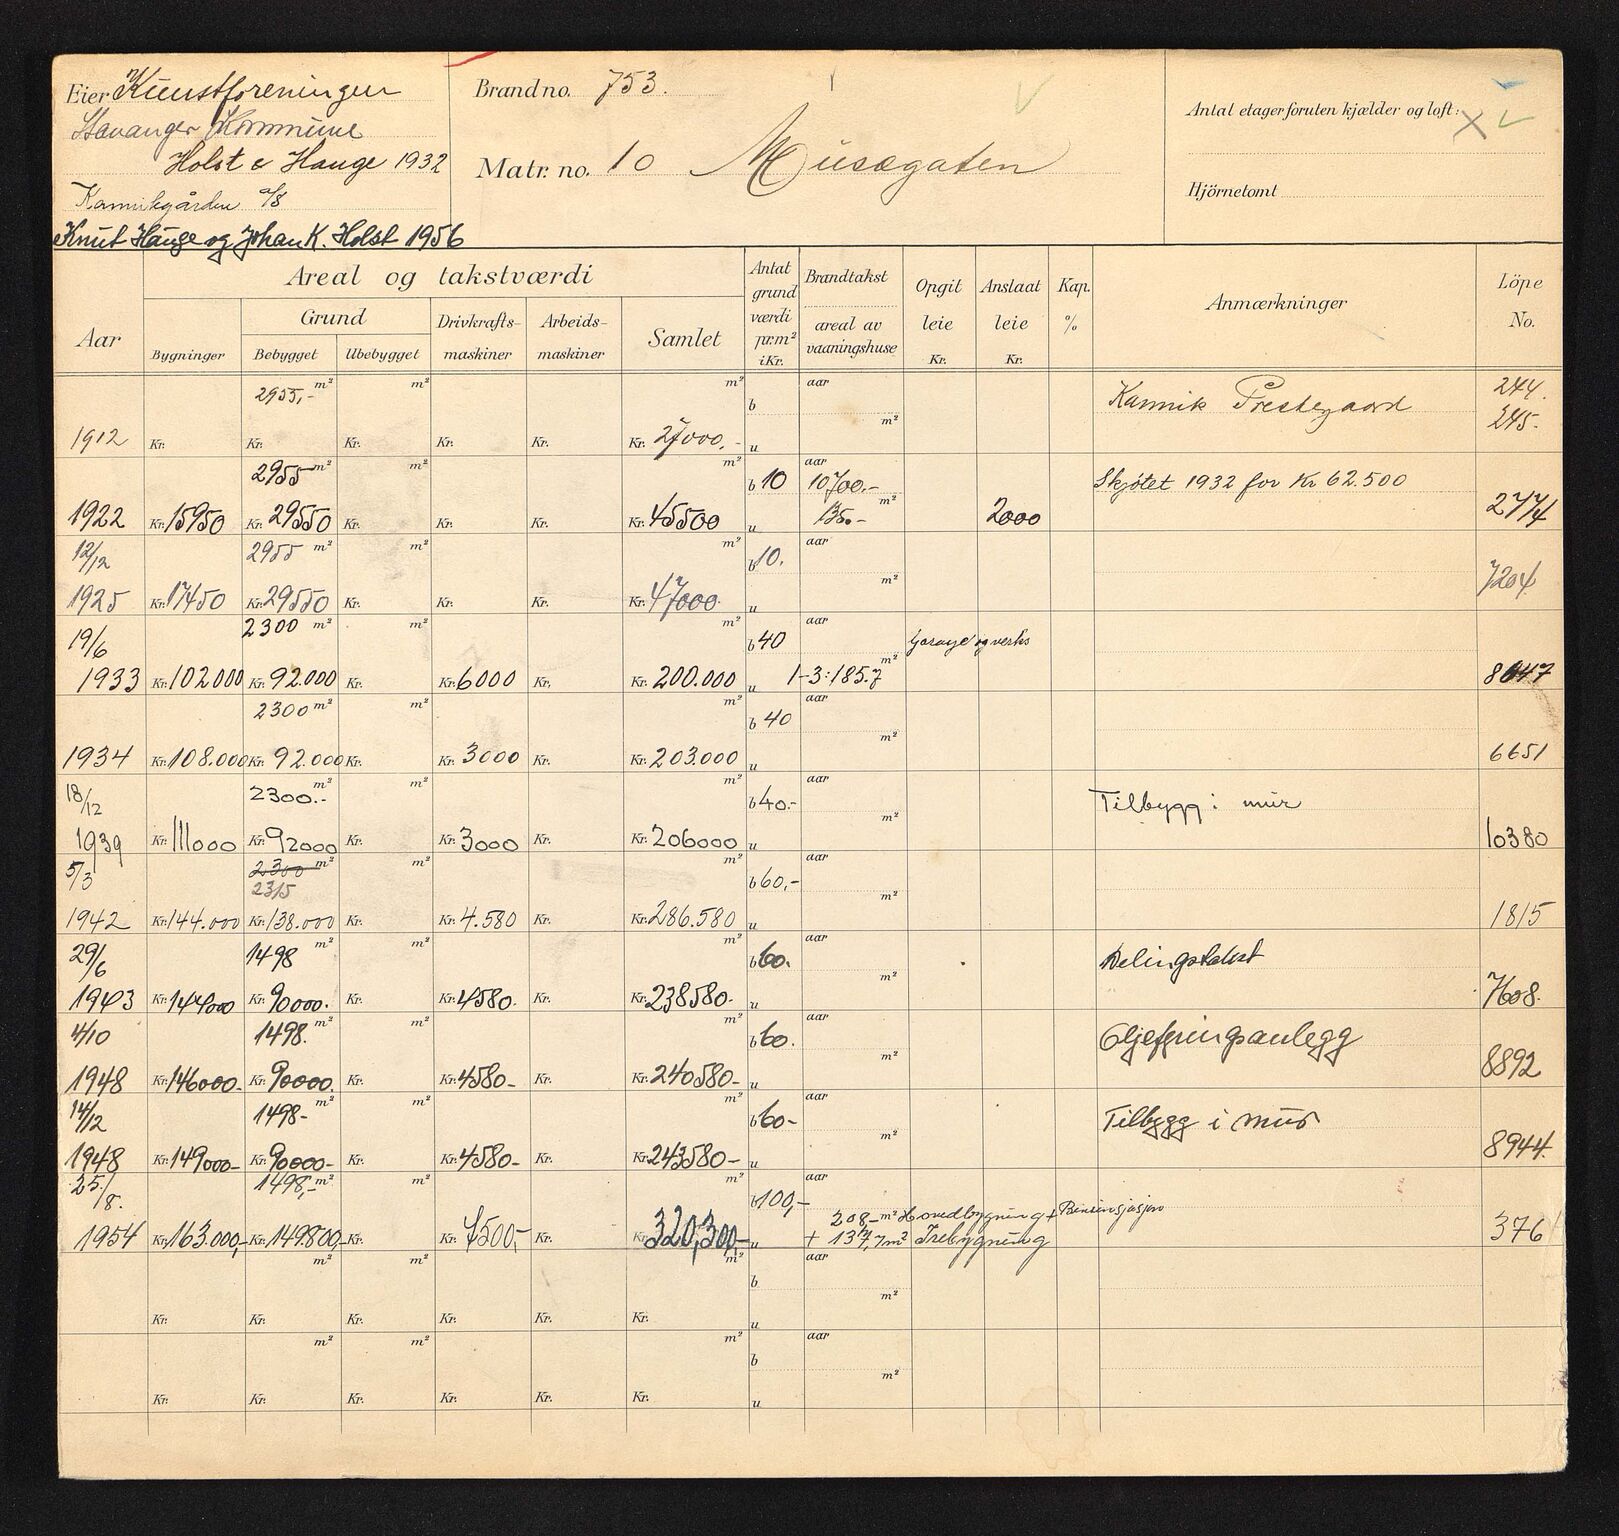 Eier Kunstforeningen
Stavanger Kommune
Holst & Hauge 1932
Kannikgården a/s
Knut Hauge og Johan K. Holst 1956
Brand no. 753.
Matr. no. 10 Musegaten
Antal etager foruten kjælder og loft:
Hjörnetomt
Aar
Areal og takstværdi
Bygninger
Grund
Bebygget Ubebygget
Drivkrafts-maskiner
Arbeids-maskiner
Samlet
Antat grund værdi pr. m² i Kr.
Brandtakst
areal av vaaningshuse
Opgit leie Kr.
Anslaat leie Kr.
Kap. %
Anmærkninger
Löpe No.
2955,- m² m² m² b aar Kannik Prestegaard 244.
1912 Kr. Kr. Kr. Kr. Kr. Kr. 27000,- u m² 245.
2955 m² m² m² b 10 aar 10700.- Skjøtet 1932 for Kr 62.500
1922 Kr. 15950 Kr. 29550 Kr. Kr. Kr. Kr. 45500 u 135.- m² 2000 2774
12/12 2955 m² m² m² b 10. aar
1925 Kr. 17450 Kr. 29550 Kr. Kr. Kr. Kr. 47000. u m² 7204
19/6 2300 m² m² m² b 40 aar Garage og verks
1933 Kr. 102000 Kr. 92.000 Kr. Kr. 6000 Kr. Kr. 200.000 u 1-3:185.7 m²
2300 m² m² m² b 40 aar
1934 Kr. 108.000 Kr. 92.000 Kr. Kr. 3000 Kr. Kr. 203.000 u m² 6651
18/12 2300.- m² m² m² b 40.- aar Tilbygg i mur
1939 Kr. 111000 Kr. 92000 Kr. Kr. 3000 Kr. Kr. 206000 u m² 10380
5/3 2300 m² m² m² b 60,- aar
2315
1942 Kr. 144.000 Kr. 138.000 Kr. Kr. 4.580 Kr. Kr. 286.580 u m² 1815
29/6 1498 m² m² m² b 60. aar Delingstakst
1943 Kr. 144000 Kr. 90000. Kr. Kr. 4580. Kr. Kr. 238580.- u m² 7608.
4/10 1498. m² m² m² b 60. aar Oljefyringsanlegg
1948 Kr. 146000- Kr. 90000. Kr. Kr. 4580- Kr. Kr. 240580- u m² 8892
14/12 1498- m² m² m² b 60- aar Tilbygg i mur
1948 Kr. 149000- Kr. 90000- Kr. Kr. 4580- Kr. Kr. 243580- u m² 8944.
25./8. 1498,- m² m² m² b 100,- aar
208,- m² Hovedbygning +
1954 Kr. 163.000,- Kr. 149800,- Kr. Kr. 7500,- Kr. Kr. 320,300,- u + 137,7 m² Trebygning 376
m² m² m² b aar
Kr. Kr. Kr. Kr. Kr. Kr. u m²
m² m² m² b aar
Kr. Kr. Kr. Kr. Kr. Kr. u m²